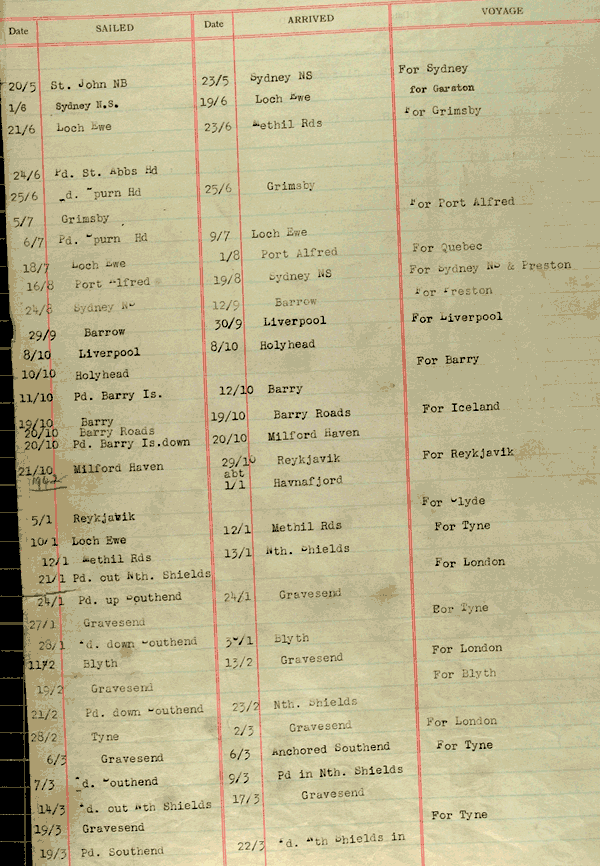 Date SAILED Date ARRIVED VOYAGE
20/5 St. John NB 23/5 Sydney NS For Sydney
1/6 Sydney N.S. 19/6 Loch Ewe for Garston
21/6 Loch Ewe 23/6 Methil Rds For Grimsby
24/6 Pd. St. Abbs Hd
25/6 Pd. Spurn Hd 25/6 Grimsby
5/7 Grimsby For Port Alfred
6/7 Pd. Spurn Hd 9/7 Loch Ewe
18/7 Loch Ewe 1/8 Port Alfred For Quebec
16/8 Port Alfred 19/8 Sydney NS For Sydney NS & Preston
24/8 Sydney NS 12/9 Barrow For Preston
29/9 Barrow 30/9 Liverpool For Liverpool
8/10 Liverpool 8/10 Holyhead
10/10 Holyhead For Barry
11/10 Pd. Barry Is. 12/10 Barry
19/10 Barry 19/10 Barry Roads For Iceland
20/10 Barry Roads
20/10 Pd. Barry Is.down 20/10 Milford Haven
21/10 Milford Haven 29/10 Reykjavik For Reykjavik
1942 abt
1/1 Havnafjord
5/1 Reykjavik For Clyde
10/1 Loch Ewe 12/1 Methil Rds For Tyne
12/1 Methil Rds 13/1 Nth. Shields
21/1 Pd. out Nth. Shields For London
24/1 Pd. up Southend 24/1 Gravesend
27/1 Gravesend For Tyne
28/1 Pd. down Southend 30/1 Blyth
11/2 Blyth 13/2 Gravesend For London
19/2 Gravesend For Blyth
21/2 Pd. down Southend 23/2 Nth. Shields
28/2 Tyne 2/3 Gravesend For London
6/3 Gravesend 6/3 Anchored Southend For Tyne
7/3 Pd. Southend 9/3 Pd in Nth. Shields
14/3 Pd. out Nth Shields 17/3 Gravesend
19/3 Gravesend For Tyne
19/3 Pd. Southend 22/3 Pd. Nth Shields in